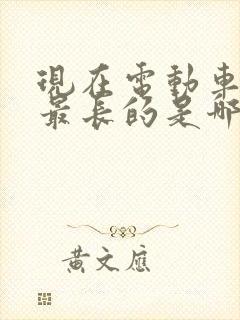 現在電動車
最長的是哪
黃文應